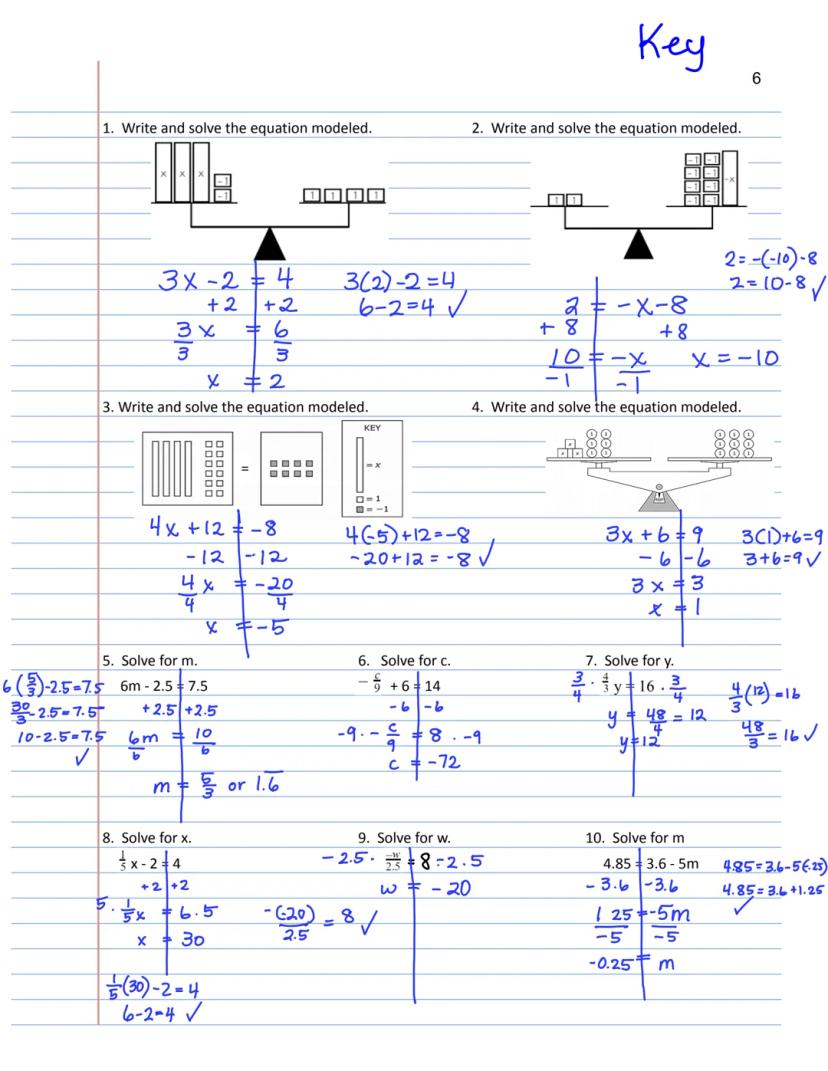 Key
6
1. Write and solve the equation modeled.
x x x -1
-1
1 1 1 1
3x - 2 = 4
+2 +2
3/3 x = 6/3
x = 2
3(2)-2=4
6-2=4 ✓
2. Write and solve the equation modeled.
1 1
-1 -1
-1 -1
-1 -1
-1 -1
-x
2 = -x-8
+8 +8
10/-1 = -x/-1
x = -10
2=-(-10)-8
2=10-8 ✓
3. Write and solve the equation modeled.
=
KEY
= x
= 1
= -1
4x +12 = -8
-12 -12
4/4 x = -20/4
x = -5
4(-5)+12=-8
-20+12=-8 ✓
4. Write and solve the equation modeled.
x
x x
1 1
1 1
1 1
1 1 1
1 1 1
1 1 1
3x + 6 = 9
-6 -6
3x = 3
x = 1
3(1)+6=9
3+6=9 ✓
5. Solve for m.
6m - 2.5 = 7.5
+2.5 +2.5
6m/6 = 10/6
m = 5/3 or 1.6̅
6(5/3)-2.5=7.5
30/3-2.5=7.5
10-2.5=7.5
✓
6. Solve for c.
-c/9 + 6 = 14
-6 -6
-9 · -c/9 = 8 · -9
c = -72
7. Solve for y.
3/4 · 4/3 y = 16 · 3/4
y = 48/4 = 12
y=12
4/3(12)=16
48/3=16 ✓
8. Solve for x.
1/5 x - 2 = 4
+2 +2
5 · 1/5x = 6·5
x = 30
1/5(30)-2=4
6-2=4 ✓
9. Solve for w.
-2.5 · -w/2.5 = 8·-2.5
w = -20
-(-20)/2.5 = 8 ✓
10. Solve for m
4.85 = 3.6 - 5m
-3.6 -3.6
1 25/-5 = -5m/-5
-0.25 = m
4.85=3.6-5(-.25)
4.85=3.6+1.25
✓